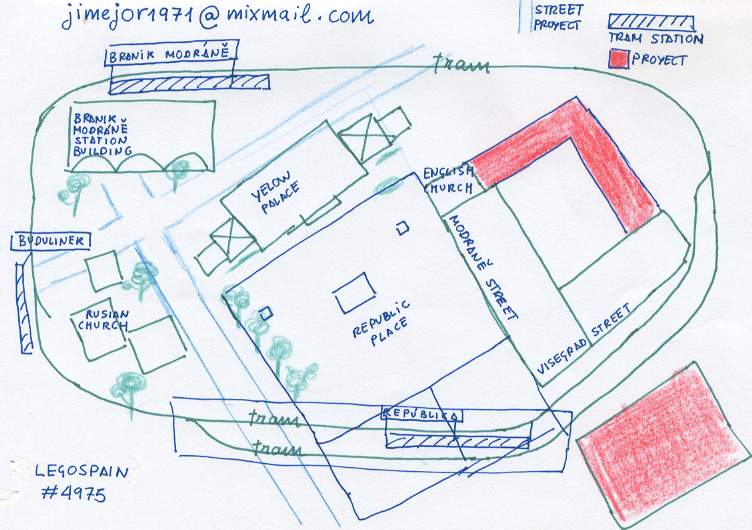 jimejor1971@mixmail.com
STREET
PROYECT
TRAM STATION
PROYECT
BRANIK MODRÁNĚ
tram
BRANIK
MODRÁNĚ
STATION
BUILDING
YELOW
PALACE
ENGLISH
CHURCH
BUDULINEK
MODRANĚ STREET
RUSIAN
CHURCH
REPUBLIC
PLACE
VISEGRAD STREET
REPÚBLICA
tram
tram
LEGOSPAIN
#4975